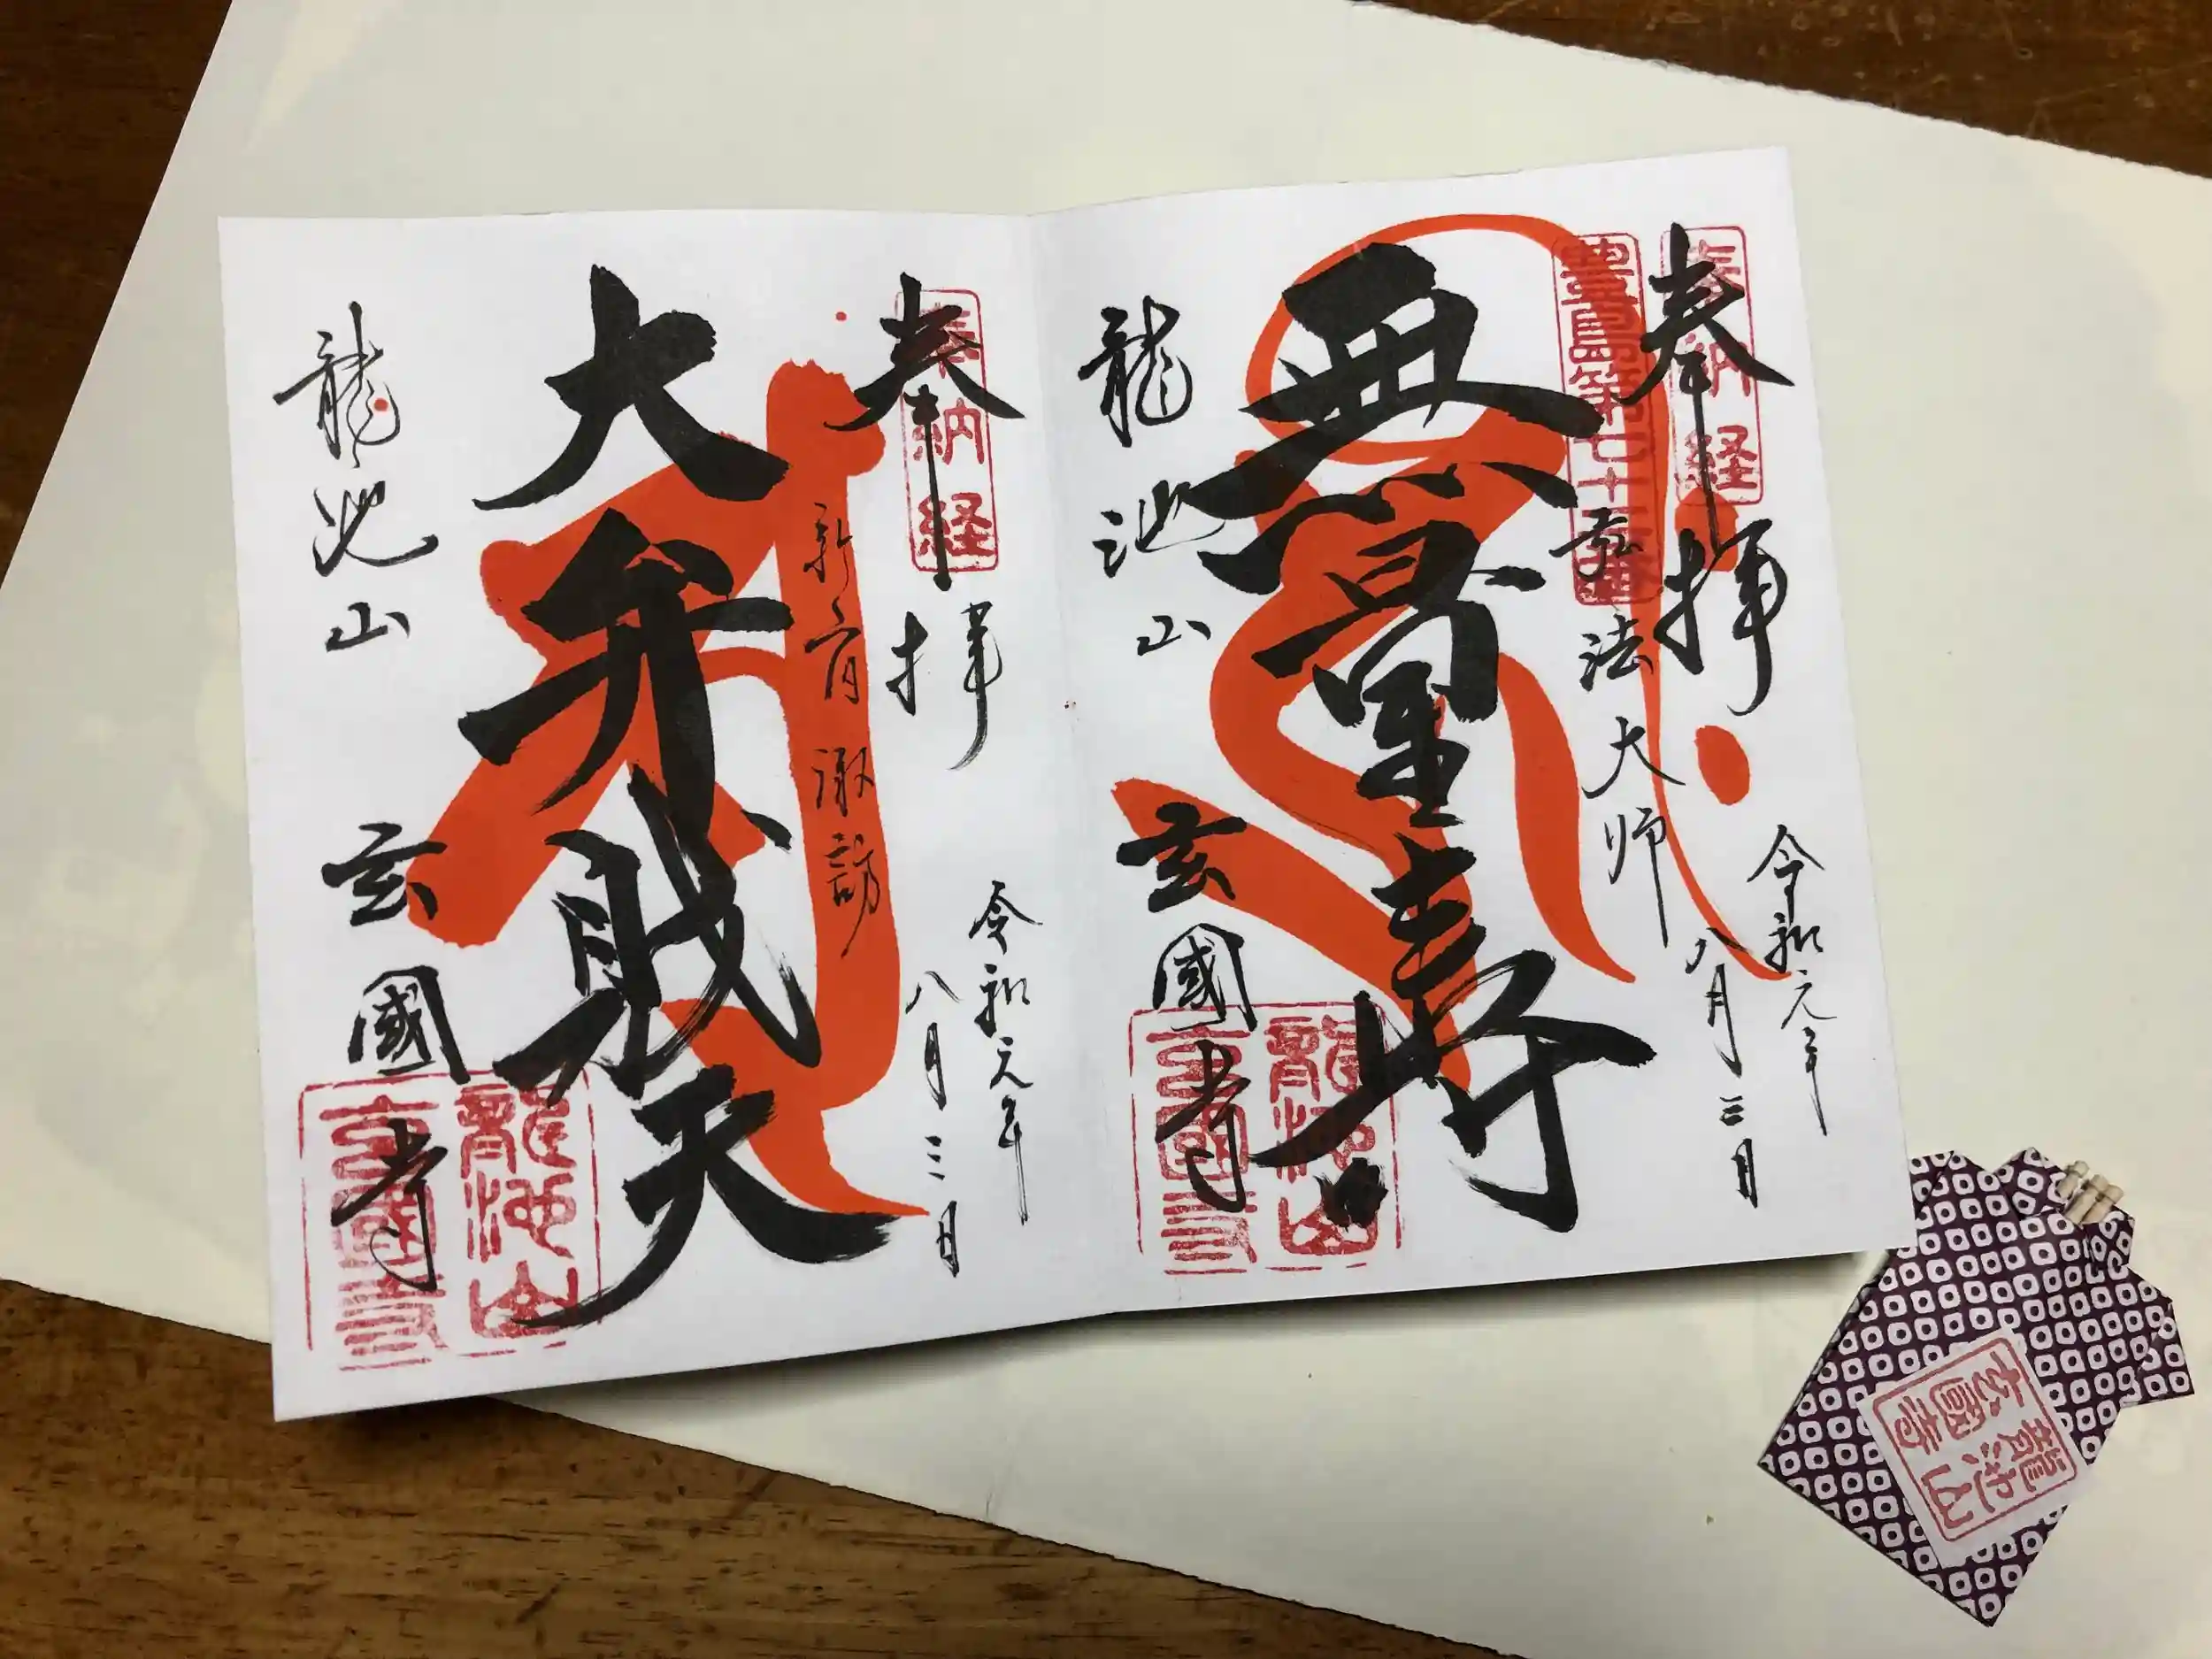 奉拝
奉納経
令和元年
八月三日
豊島第七十
弘法大師
無量寿
龍池山
玄國寺
龍池山
玄國寺
奉拝
奉納経
令和元年
八月三日
新宿諏訪
大弁財天
龍池山
玄國寺
龍池山
玄國寺
龍池山
玄國寺